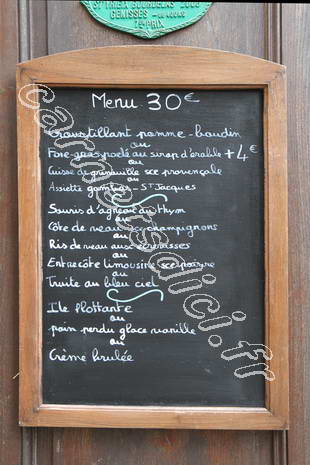 GÉNISSES
1er PRIX
Menu 30€
Croustillant pomme - boudin
ou
Foie gras poêlé au sirop d'érable +4€
ou
Cuisse de grenouille sce provençale
ou
Assiette gambas - St Jacques
Souris d'agneau au thym
ou
Côte de veau sce champignons
ou
Ris de veau aux écrevisses
ou
Entrecôte limousine sce poivre
ou
Truite au bleu ciel
Ile flottante
ou
pain perdu glace vanille
ou
Crème brulée
carnetsdici.fr